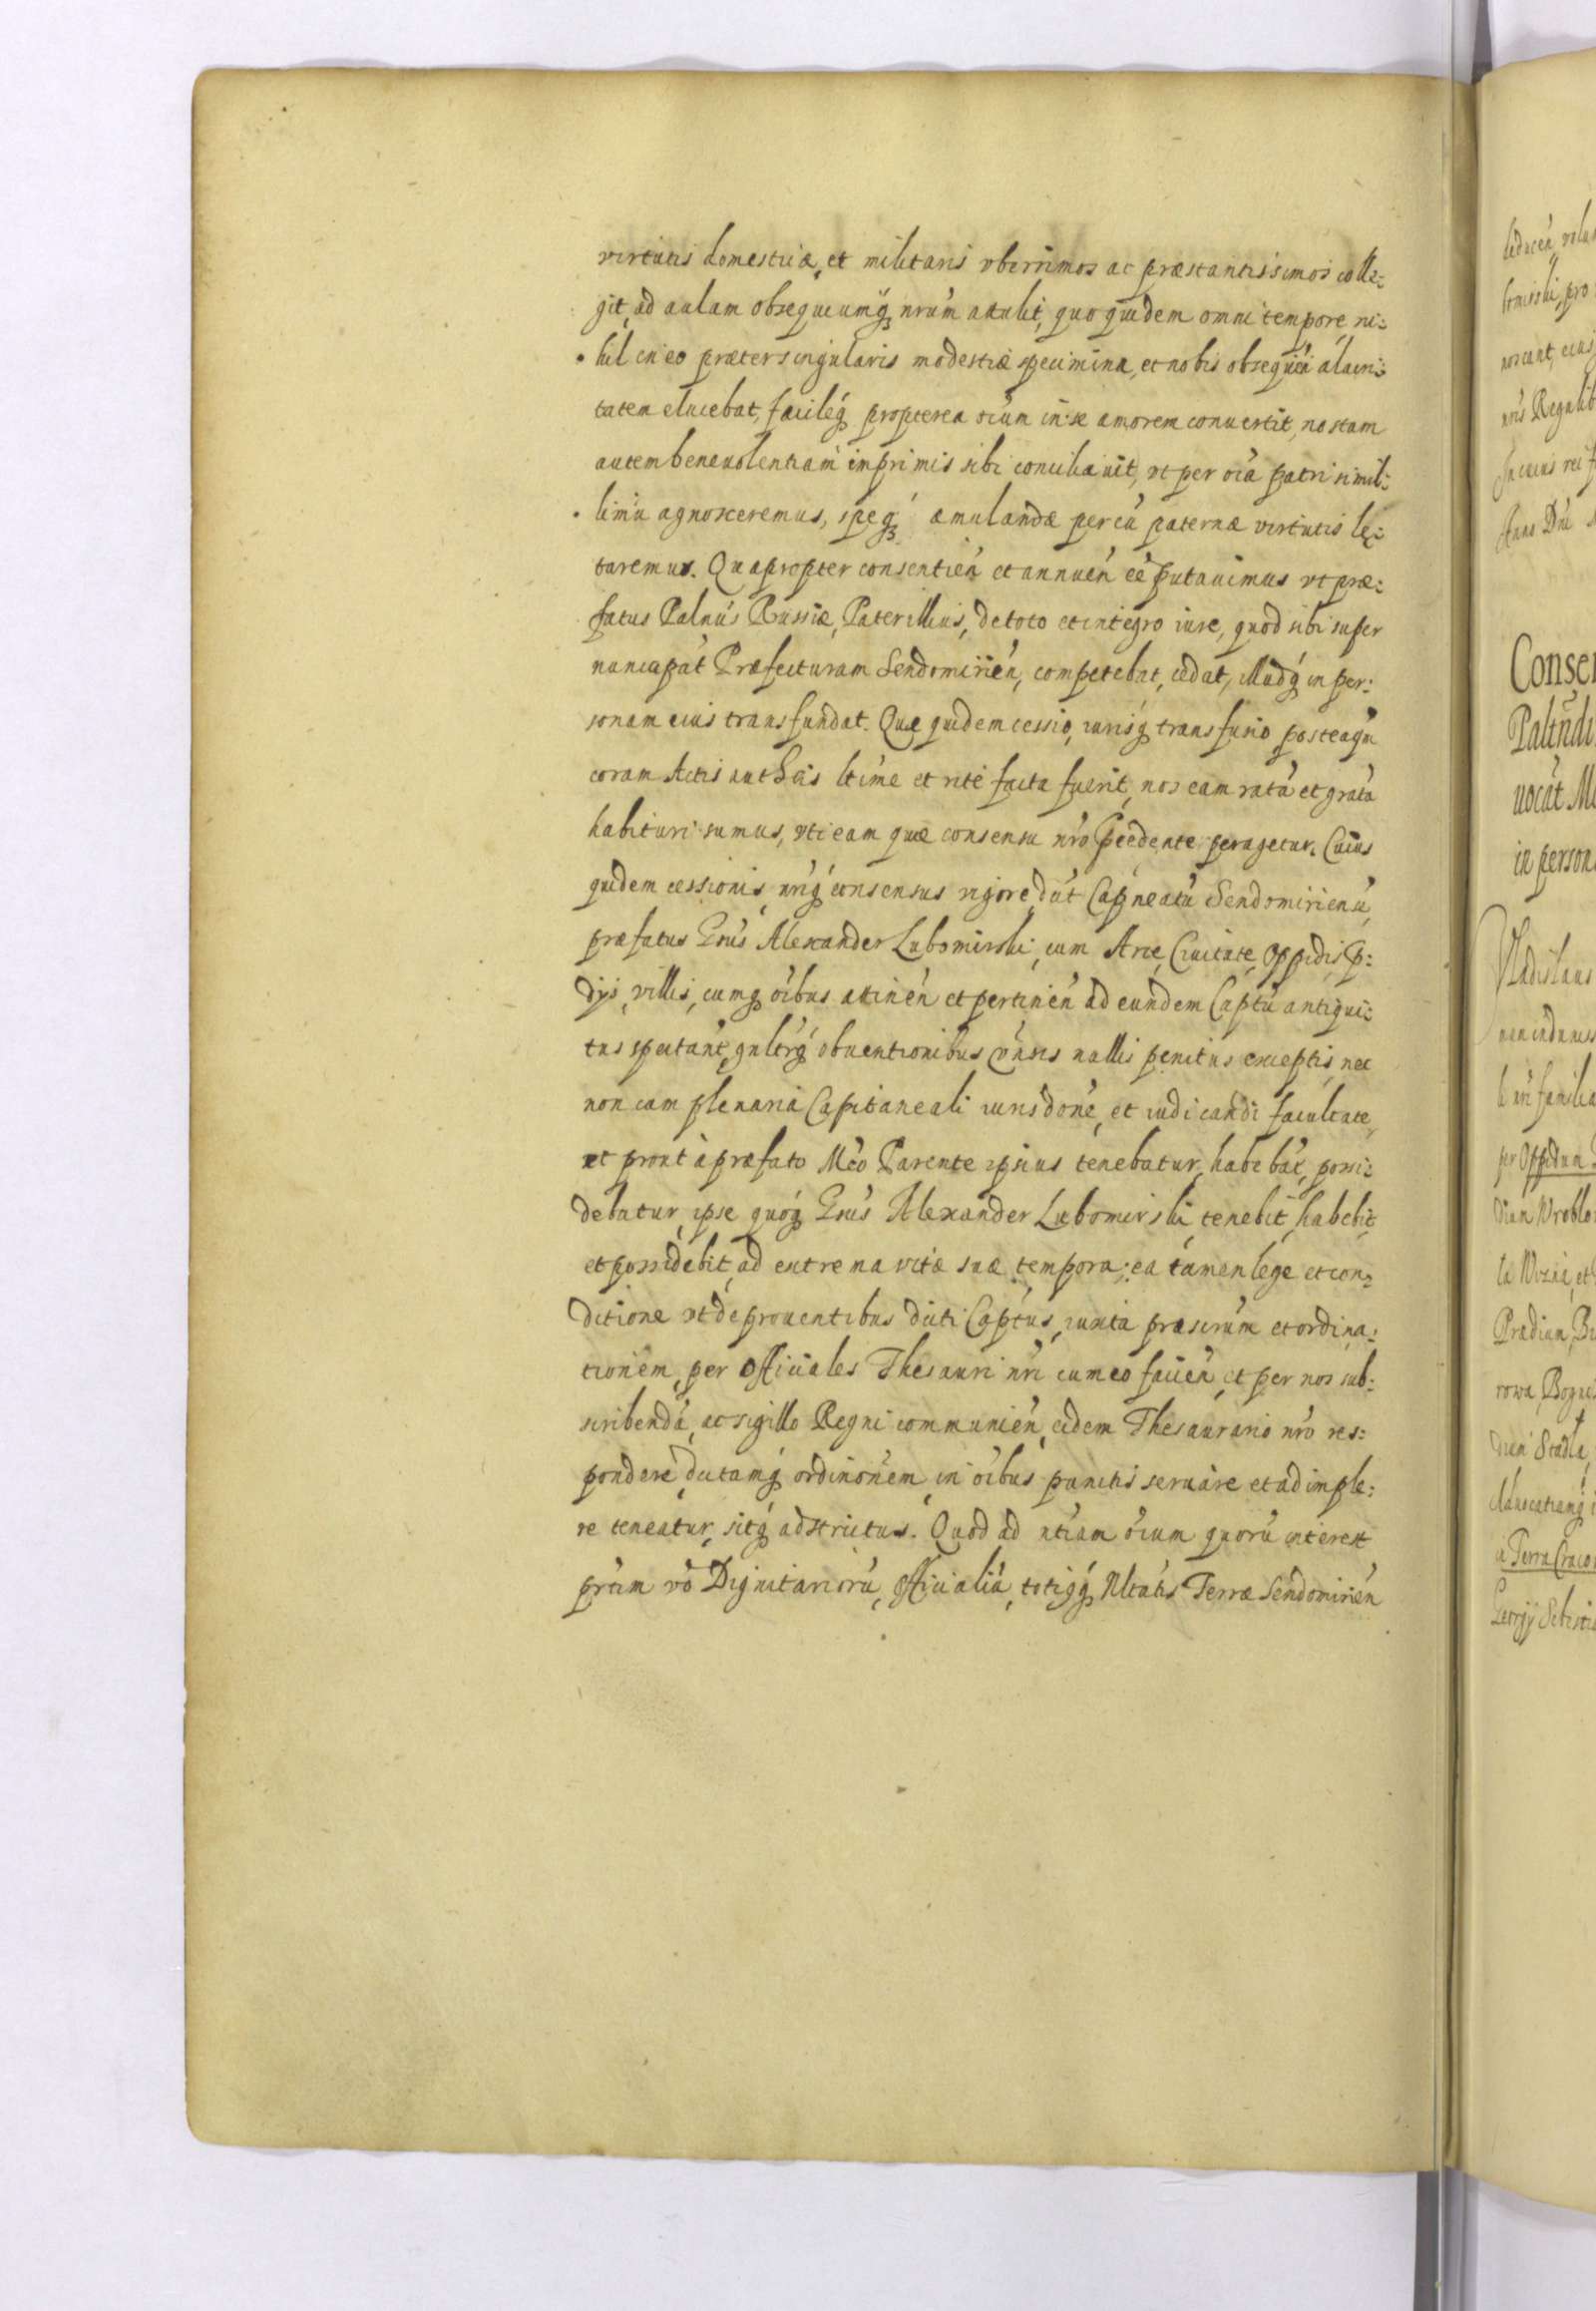 virtutis domesticæ, et militaris vberrimos ac præstantissimos colle:
git, ad aulam obsequiumq; nrũm attulit, quo quidem omni tempore ni:
hil in eo præter singularis modestiæ specimina, et nobis obsequẽn alacri:
tatem elucebat, facileq́ propterea oĩum in se amorem conuertit, nostam
autem beneuolentiam inprimis sibi conciliauit, vt per oĩa patri simil:
limũ agnosceremus, speq; æmulandæ per eũ paternæ virtutis læ:
taremur. Quapropter consentieñ et annueñ eẽ putauimus vt præ:
fatus Palnũs Russiæ, Pater illius, de toto et integro iure, quod sibi super
nuncupãt Præfecturam Sendomirieñ, competebat, cedat, illudq́ in per:
sonam eius transfundat. Quæ quidem cessio, iurisq́ transfusio, posteaqũ
coram Actis authẽis ltĩme et ritè facta fuerit, nos eam ratã et gratã
habituri sumus, vti eam quæ consensu nrõ p̃cedente peragetur. Cuius
quidem cessionis, nrĩq́ consensus vigore, dũt Capneatũ Sendomiriensũ,
præfatus Gnũs Alexander Lubomirski, cum Arce, Ciuitate, Oppidis, p̃:
dijs, villis, cumq; oĩbus attineñ et pertineñ ad eundem Captũ antiqui:
tus spectant̃,
non cum plenaria Capitaneali iurisdonẽ, et iudicandi facultate,
et prout à præfato Mcõ Parente ipsius tenebatur, habebãt, possi:
debatur, ipse quoq́ Gnũs Alexander Lubomirski, tenebit, habebit,
et possidebit, ad extrema vitæ suæ tempora: ea tamen lege et con:
ditione vt de prouentibus dicti Captũs, iuxta præscrũm et ordina:
tionem, per Officiales Thesauri nrĩ cum eo facieñ, et per nos sub:
scribendã, ac sigillo Regni communieñ, eidem Thesaurario nrõ res:
pondere, dictamq́ ordinonẽm, in oĩbus punctis seruare et adimple:
re teneatur, sitq́ adstrictus. Quod ad ntĩam oĩum quorũ interest
prtĩm võ Dignitariorũ, Officialiũ, totiq́ Nltatĩs Terræ Sendomirieñ